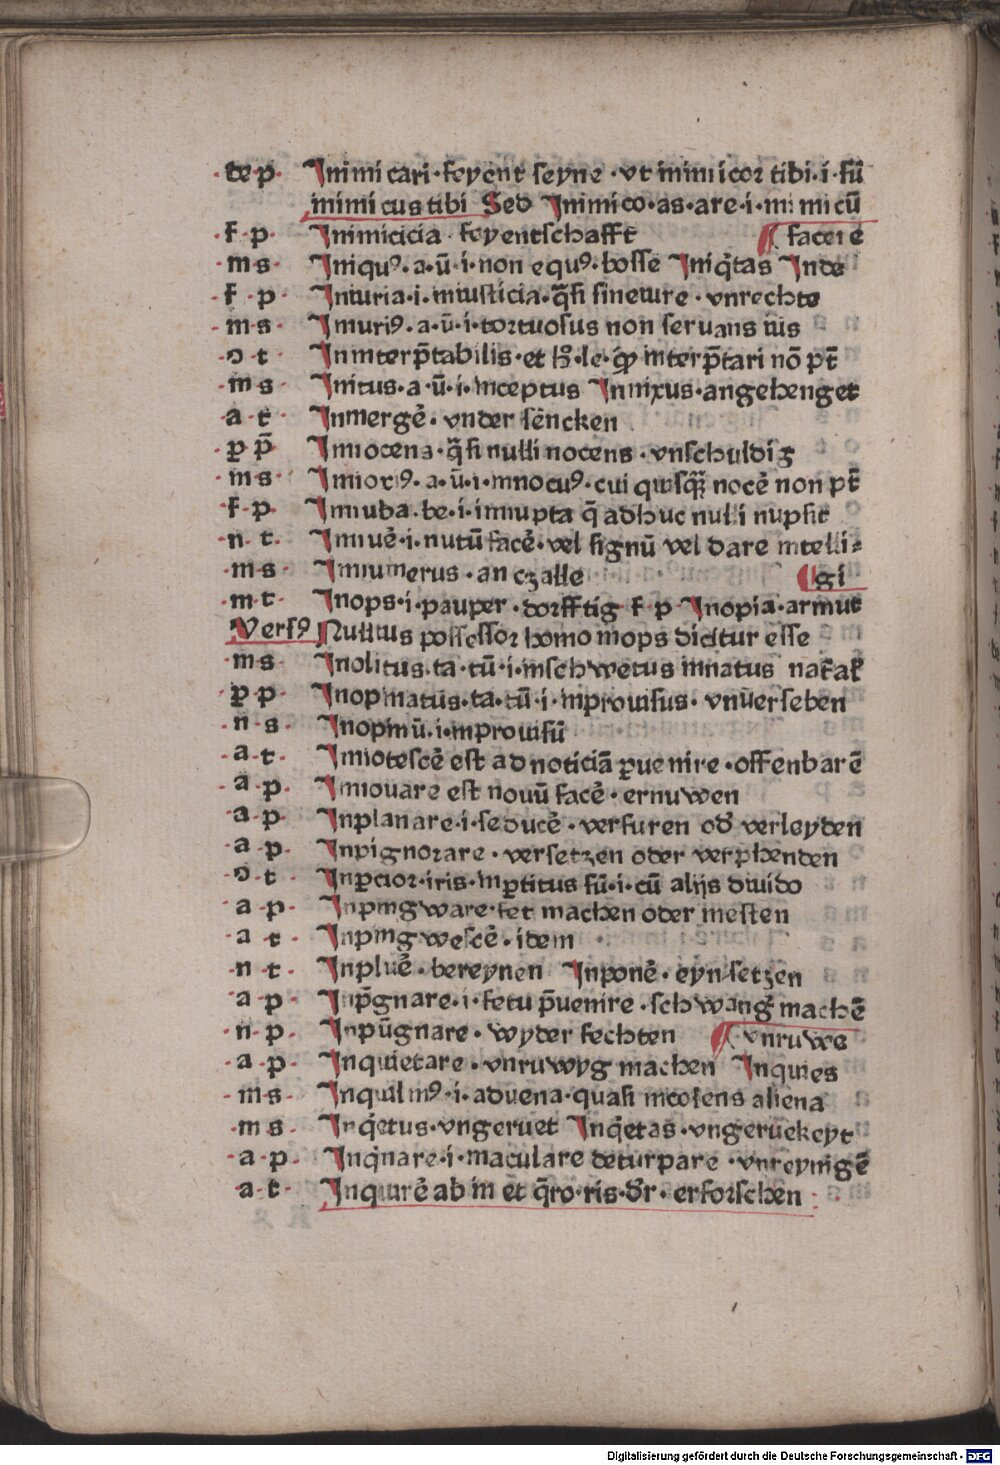 de p Inimicari · feyent seyne · vt inimicor tibi · i · sū
inimicus tibi Sed Inimico · as · are · i · inimicū
f p Inimicicia · feyentschafft ¶ facere
m s Iniquꝰ · a · ū · i · non equꝰ · bosse Iniq̄tas Inde
f p Iniuria · i · iniusticia · q̄si sine iure · vnrechte
m s Iniuriꝰ · a · ū · i · tortuosus non seruans iūs
ɔ t Ininterp̄tabilis · et hꝰ · le · qͥ interp̄tari nō pt̄
m s Initus · a · ū · i · inceptus Innixus · angehenget
a t Inmergē · vnder sēncken
ꝑ p̄ Innocens · q̄si nulli nocens · vnschuldig
m s Innoxiꝰ · a · ū · i · innocuꝰ · cui quisq̄ȝ nocē non pt̄
f p Innuba · be · i · innupta q̄ adhuc nulli nupsit
n t Innuē · i · nutū facē · vel signū vel dare intelli⸗
m s Innumerus · an czalle ¶ gi
m t Inops · i · pauper · dorfftig f p Inopia · armut
Versꝰ Nullius possessor homo inops dicitur esse
m s Inolitus · ta · tū · i · inschwetus innatus
ꝑ p Inopinatus · ta · tū · i · inprouisus · vnūersehen
n s Inopinū · i · inprouisū
a t Innotescē est ad noticiā ꝑuenire · offenbarē
a p Innouare est nouū facē · ernuwen
a p Inplanare · i · seducē · verfuren od̄ verleyden
a p Inpignorare · versetzen oder verphenden
ɔ t Inꝑcior · iris · inꝑtitus sū · i · cū alijs diuido
a p Inpingware · fet machen oder mesten
a t Inpingwescē · idem
n t Inpluē · bereynen Inponē · eyn setzen
a p Inp̄gnare · i · fetu p̄uenire · schwanḡ machē
n p Inpūgnare · wyder fechten ¶ vnruwe
a p Inquietare · vnruwyg machen Inquies
m s Inquilinꝰ · i · aduena · quasi incolens aliena
m s Inq̄etus · vngeruet Inq̄etas · vngeruekeyt
a p Inq̄nare · i · maculare deturpare · vnreynigē
a t Inquirē ab in et q̄ro · ris · dr̄ · erforschen
Digitalisierung gefördert durch die Deutsche Forschungsgemeinschaft · DFG